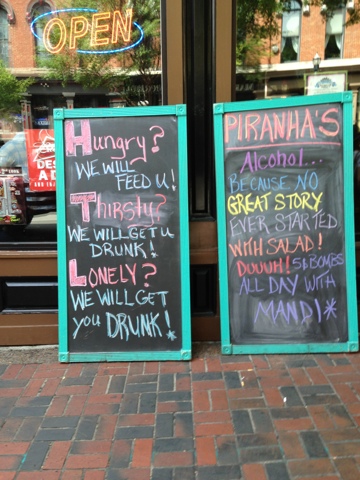 OPEN
DES
A D
Hungry?
WE WILL
FEED U!
Thirsty?
WE WILL GET U
DRUNK!
LONELY?
WE WILL GET
YOU DRUNK!*
PIRANHA'S
Alcohol...
BECAUSE NO
GREAT STORY
EVER STARTED
WITH SALAD!
DUUUH! 5$ BOMBS
ALL DAY WITH
MANDI*